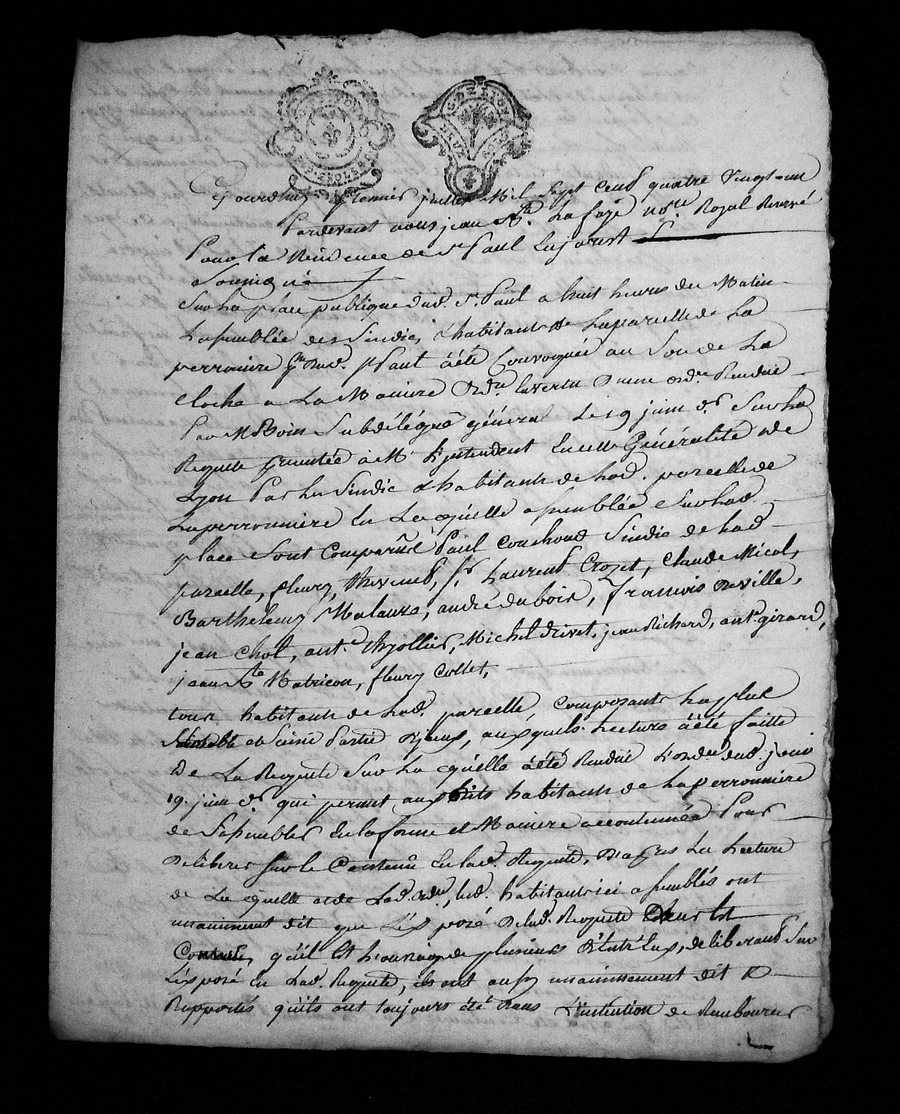 G DE LYON
G DE LYON
Ejourdhuy premier juillet Mil Sept Cent quatre Vingt un
Pardevant nous jean Bte Lafaye nore Royal Reservé
Pour la Residence de St Paul Enjarest
Soussigné
Sur la place publique dud. St Paul a huit heures du Matin
Lassemblée des Sindic, & habitants de La parcelle de La
perronniere psse dud. St Paul a été Convoquée au Son de La
Cloche a La Maniere Ordre En vertu dune ordce Rendue
Par Mr Boin Subdélégué général Le 19 juin dr Sur La
Requete presentée à Mr L'jntendant En cette Généralité de
Lyon Par Les Sindic & habitants de Lad. parcelle de
Laperronniere En Laquelle assemblée Sur lad.
place Sont Comparus Paul Couchoud Sindic de Lad.
parcelle, fleury Thevenet, Laurent Crozet, Claude Micol,
Barthelemy Malaure, andré dubois, francois Deville,
jean Chol, ante Thjollier, Michel drivet, jean Richard, ante girard,
jean Bte Matricon, fleury Collet,
tous habitants de Lad. parcelle, Composants La plus
notable et Saine Partie D'jceux, auxquels Lecture a été faitte
De La Requete Sur La quelle a été Rendue L'ordce dud. jour
19 juin dr qui permet aux dits habitants de La perronniere
de Sassembler En la forme et Maniere accoutumée Pour
Deliberer Sur le Contenu En lad. Requete, D'apres La Lecture
de La quelle et de Lad. ordce, Lesd. habitants ici assemblés ont
unanimement dit que L'Exposé De lad. Requete
qu'il Est a de plusieurs D'Entr'Eux, deliberant Sur
L'Exposé En Lad. Requete, ils ont aussy unanimement dit &
Rapportés qu'ils ont toujours été dans L'intention de Rembourcer